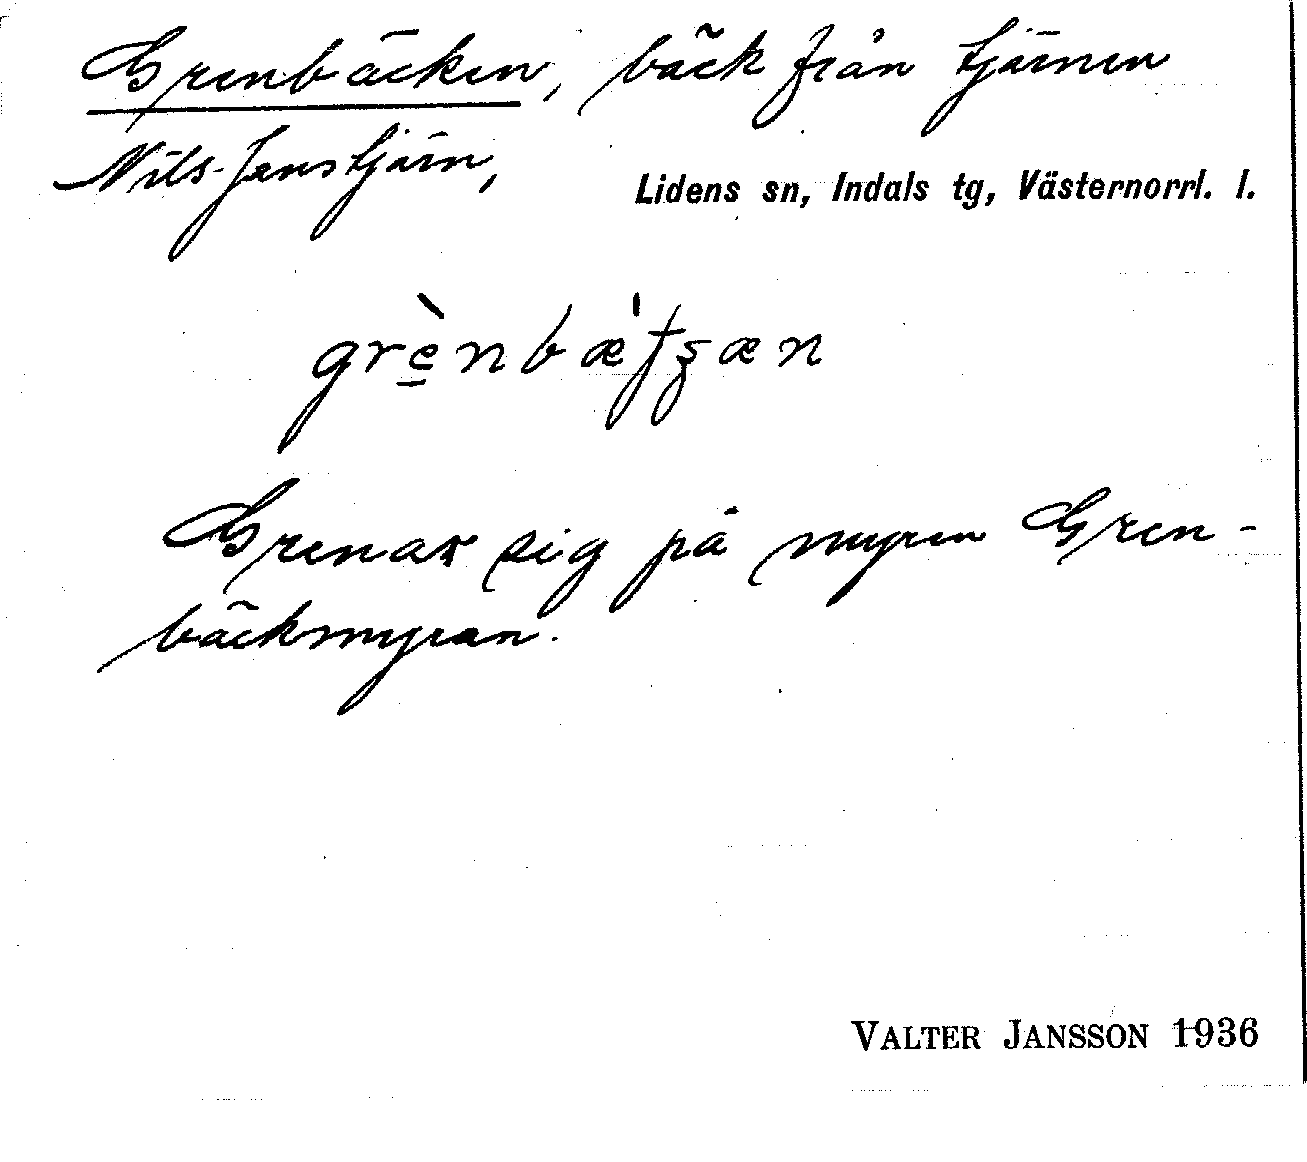 Grenbäcken, bäck från tjärnen
Nils-Janstjärn,
Lidens sn, Indals tg, Västernorrl. l.
Grenar sig på myren Gren-
bäckmyran.
VALTER JANSSON 1936